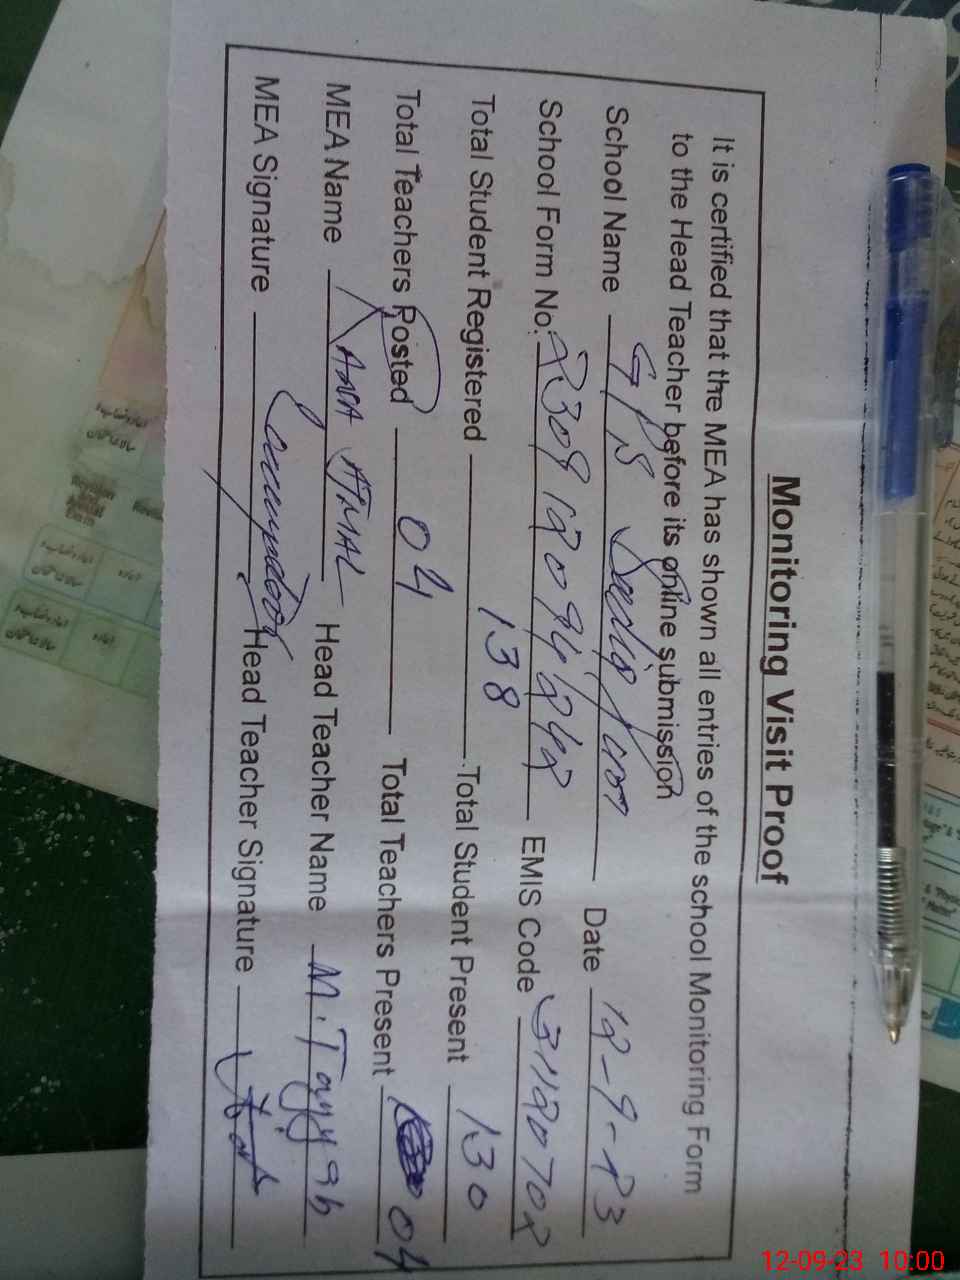 Monitoring Visit Proof
It is certified that the MEA has shown all entries of the school Monitoring Form
to the Head Teacher before its online submission
School Name GPS Date 12-9-23
School Form No. 230912094242 EMIS Code 31120702
Total Student Registered 138 Total Student Present 130
Total Teachers Posted 04 Total Teachers Present 04
MEA Name AJMAL Head Teacher Name M. Tayyab
MEA Signature Head Teacher Signature
12-09-23 10:00